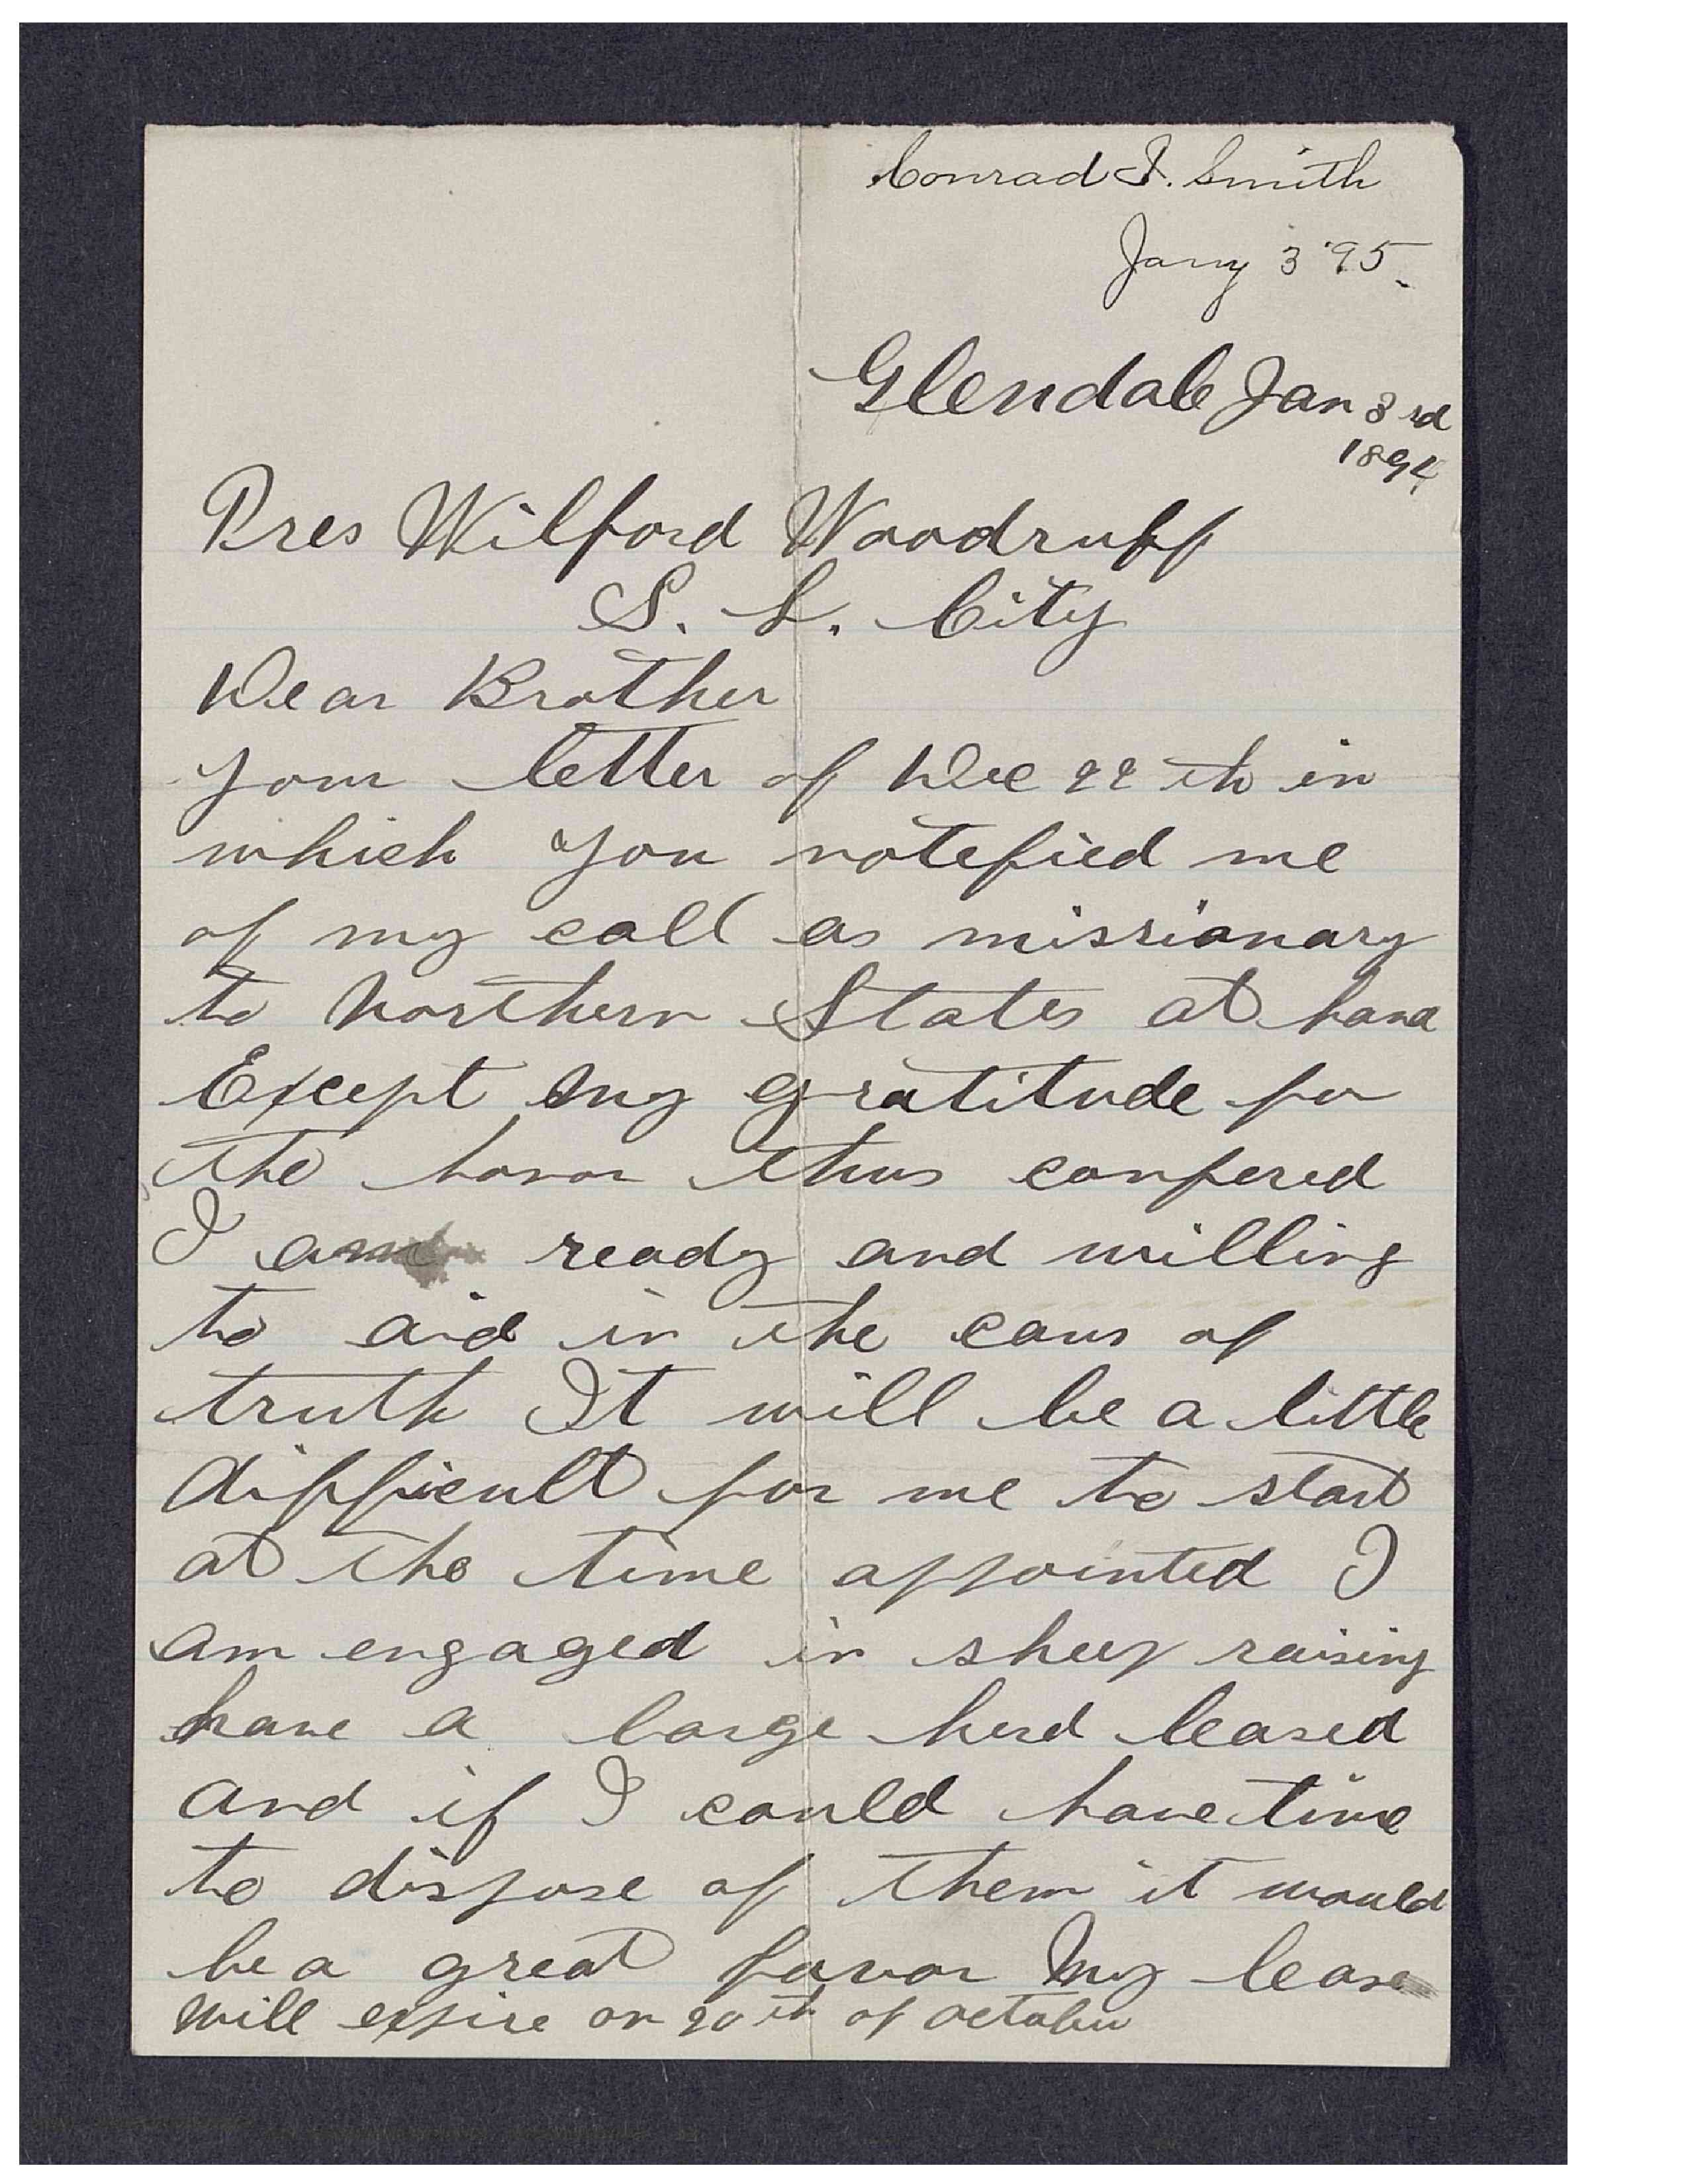 Conrad I. Smith
Jany 3 '95.
Glendale Jan 3rd
1894
Pres Wilford Woodruff
S. L. City
Dear Brother
your letter of Dec 22th in
which you notefied me
of my call as missionary
to Northern States at hand
Except my gratitude for
the honor thus confered
I am ready and willing
to aid in the caus of
truth It will be a little
difficult for me to start
at the time appointed I
am engaged in sheep raising
have a large herd leased
and if I could have time
to dispose of them it would
be a great favor My lease
will expire on 20th of October